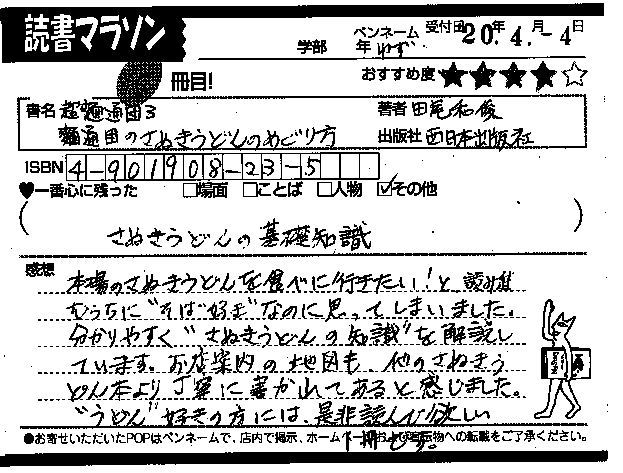 読書マラソン
学部 年 ペンネーム ゆず 受付日 20年 4月 -4日
冊目! おすすめ度 ★★★★☆
書名 超麺通団3 著者 田尾和俊
麺通団のさぬきうどんのめぐり方 出版社 西日本出版社
ISBN 4-901908-23-5
♥一番心に残った □場面 □ことば □人物 ☑その他
( さぬきうどんの基礎知識 )
感想
本場のさぬきうどんを食べに行きたい!と、読み進
むうちに"そば"好きなのに思ってしまいました。
分かりやすく"さぬきうどんの知識"を解説し
ています。お店案内の地図も、他のさぬきう
どん本より丁寧に書かれてあると感じました。
"うどん"好きの方には、是非読んで欲しい
1冊です。
●お寄せいただいたPOPはペンネームで、店内で掲示、ホームページおよび宣伝物への転載をご了承ください。